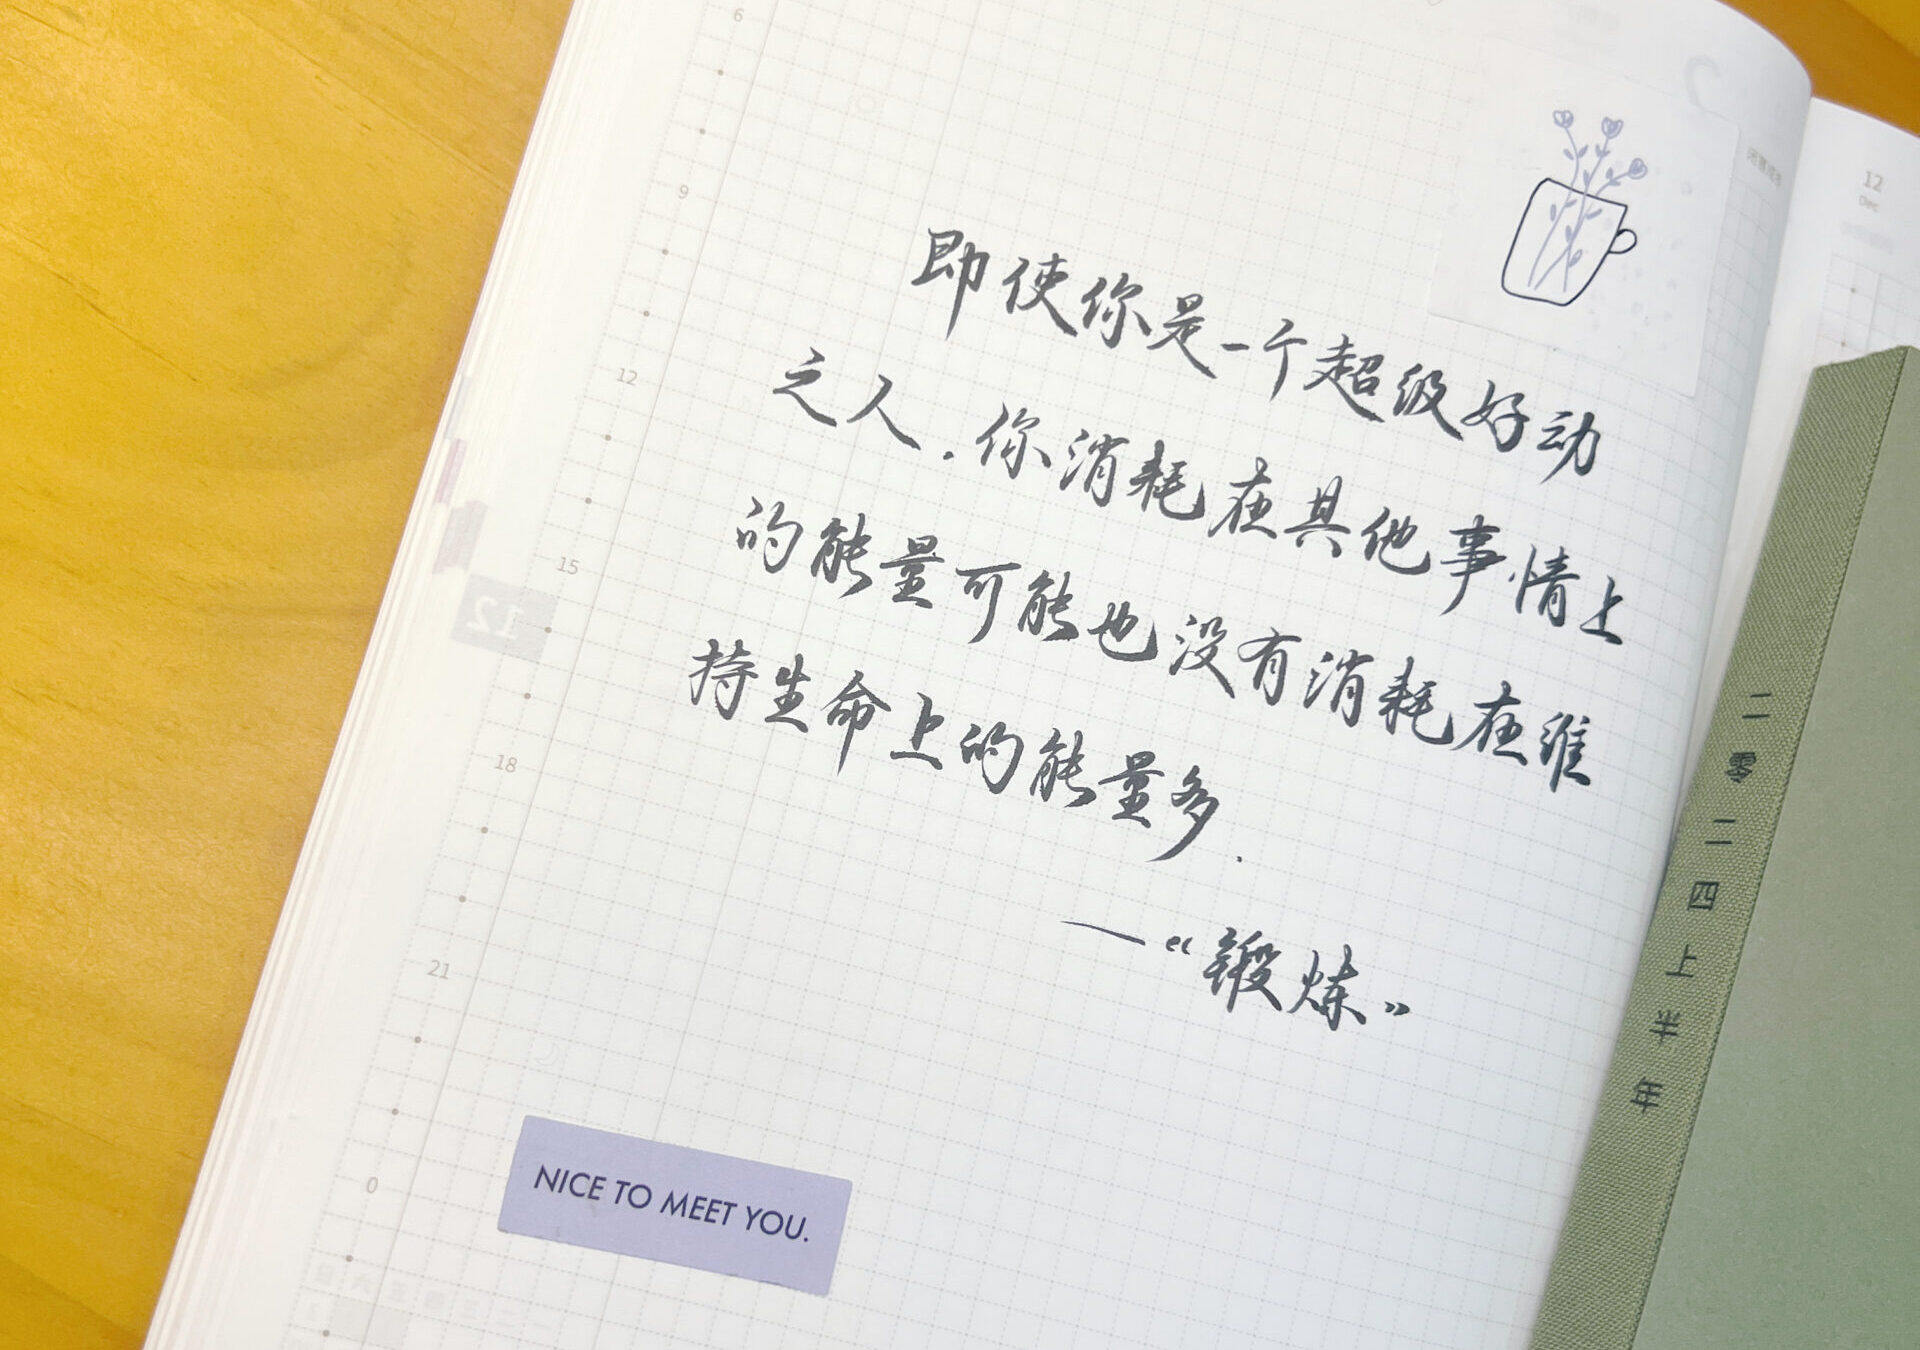 6
9
12
15
18
21
0
12
Dec
即使你是一个超级好动
之人.你消耗在其他事情上
的能量可能也没有消耗在维
持生命上的能量多.
—《锻炼》
NICE TO MEET YOU.
二零二四上半年